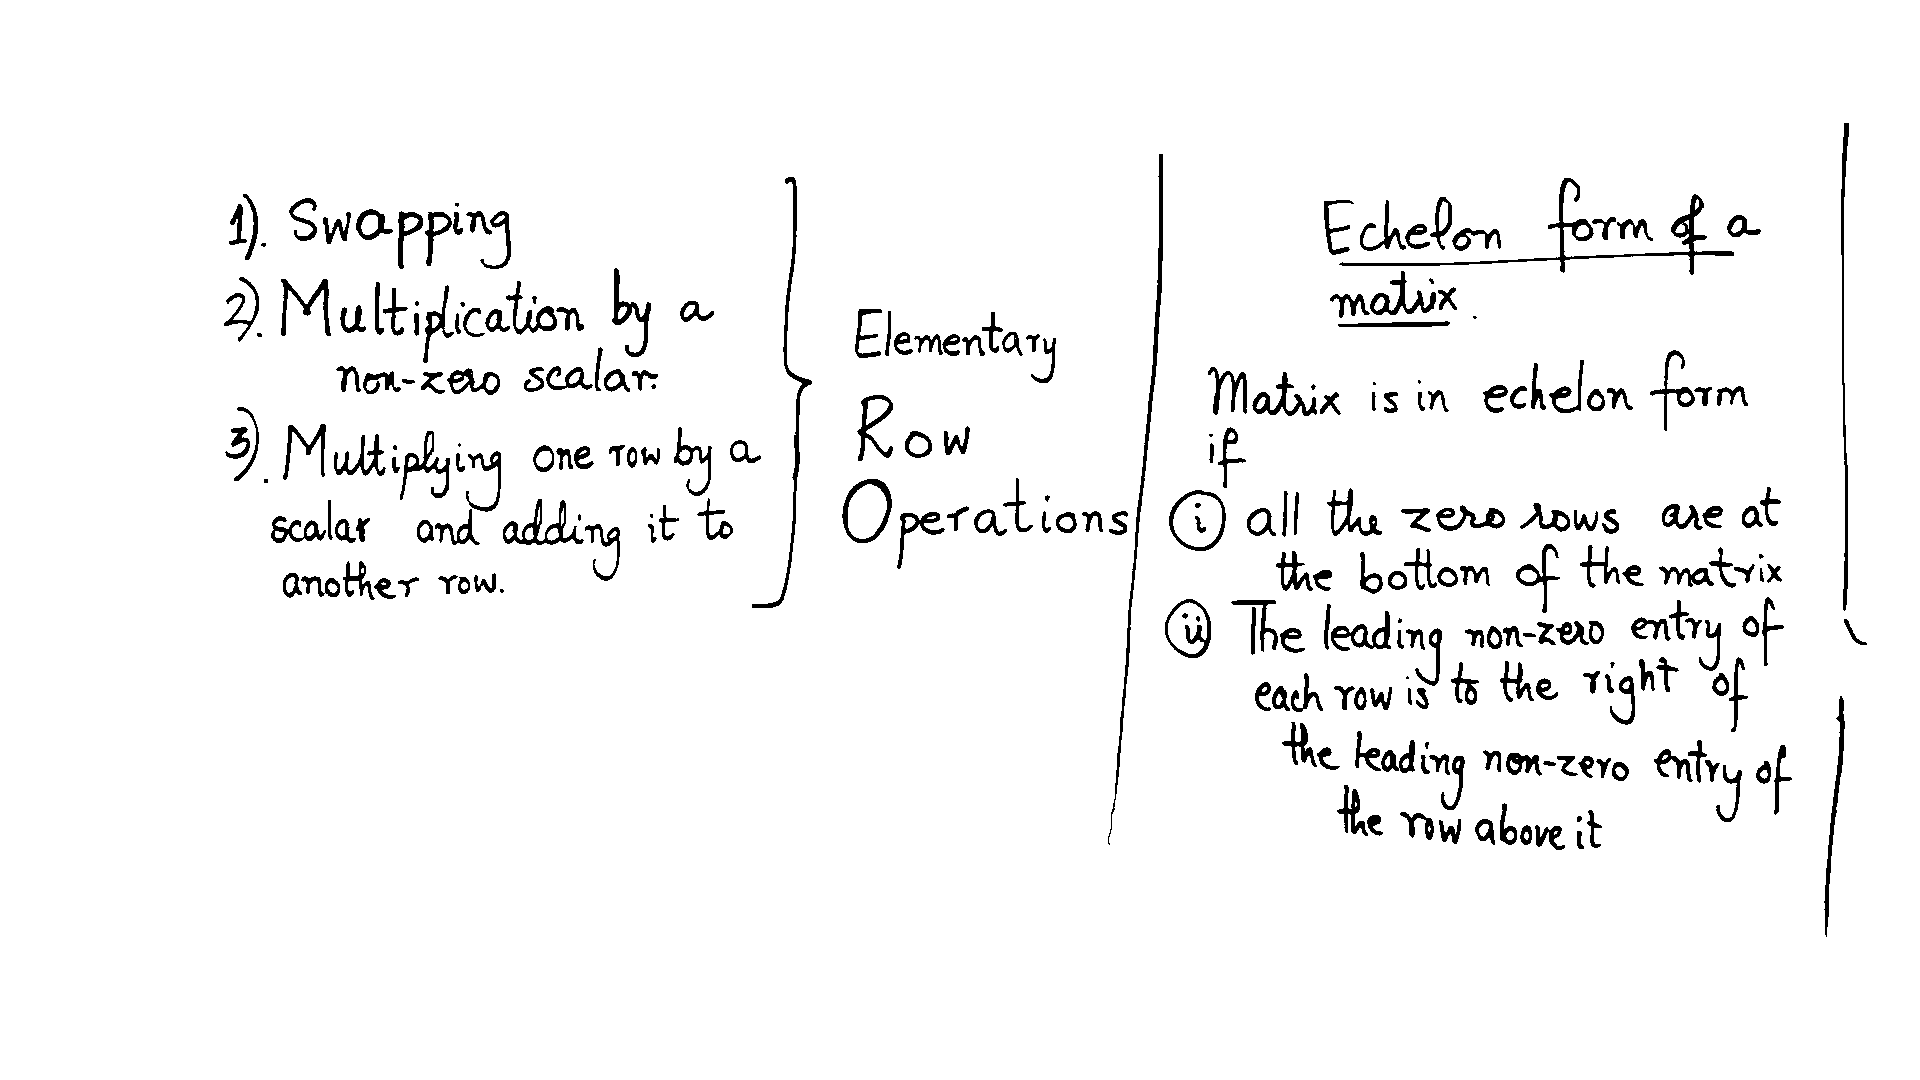 1). Swapping
2). Multiplication by a
non-zero scalar.
3). Multiplying one row by a
scalar and adding it to
another row.
Elementary
Row
Operations
Echelon form of a
matrix.
Matrix is in echelon form
if
(i) all the zero rows are at
the bottom of the matrix
(ii) The leading non-zero entry of
each row is to the right of
the leading non-zero entry of
the row above it